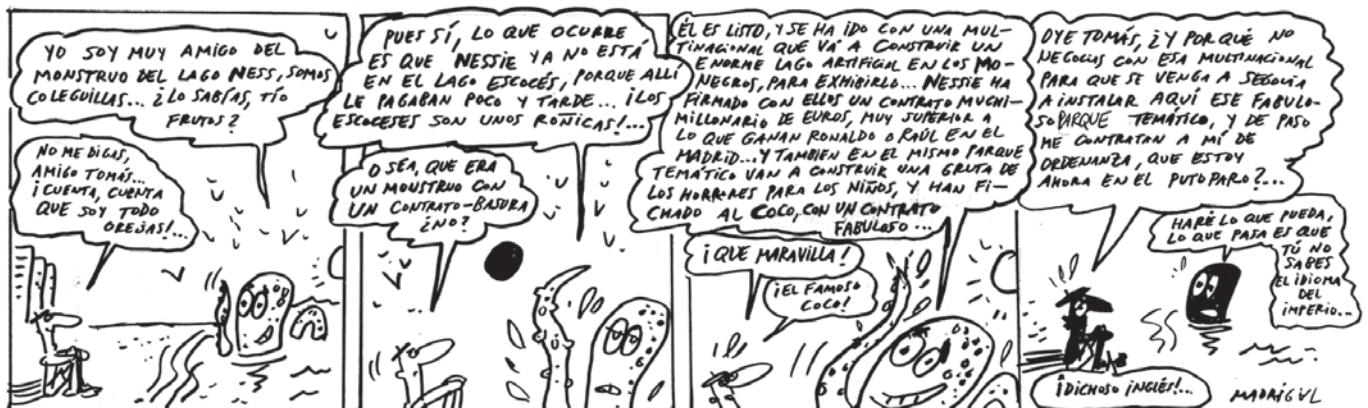 YO SOY MUY AMIGO DEL
MONSTRUO DEL LAGO NESS, SOMOS
COLEGUILLAS... ¿LO SABÍAS, TÍO
FRUTOS?
NO ME DIGAS,
AMIGO TOMÁS...
¡CUENTA, CUENTA
QUE SOY TODO
OREJAS!...
PUES SÍ, LO QUE OCURRE
ES QUE NESSIE YA NO ESTÁ
EN EL LAGO ESCOCÉS, PORQUE ALLÍ
LE PAGABAN POCO Y TARDE... ¡LOS
ESCOCESES SON UNOS ROÑICAS!...
O SEA, QUE ERA
UN MOUSTRUO CON
UN CONTRATO-BASURA
¿NO?
ÉL ES LISTO, Y SE HA IDO CON UNA MUL-
TINACIONAL QUE VÁ A CONSTRUIR UN
ENORME LAGO ARTIFICIAL EN LOS MO-
NEGROS, PARA EXHIBIRLO... NESSIE HA
FIRMADO CON ELLOS UN CONTRATO MUCHI-
MILLONARIO DE EUROS, MUY SUPERIOR A
LO QUE GANAN RONALDO O RAÚL EN EL
MADRID... Y TAMBIEN EN EL MISMO PARQUE
TEMÁTICO VAN A CONSTRUIR UNA GRUTA DE
LOS HORRORES PARA LOS NIÑOS, Y HAN FI-
CHADO AL COCO, CON UN CONTRATO
FABULOSO...
¡QUE MARAVILLA!
¡EL FAMOSO
COCO!
OYE TOMÁS, ¿Y POR QUÉ NO
NEGOCIAS CON ESA MULTINACIONAL
PARA QUE SE VENGA A SEGOVIA
A INSTALAR AQUÍ ESE FABULO-
SO PARQUE TEMÁTICO, Y DE PASO
ME CONTRATAN A MÍ DE
ORDENANZA, QUE ESTOY
AHORA EN EL PUTO PARO?...
HARÉ LO QUE PUEDA,
LO QUE PASA ES QUE
TÚ NO
SABES
EL IDIOMA
DEL
IMPERIO...
¡DICHOSO INGLÉS!...
MADRIGAL